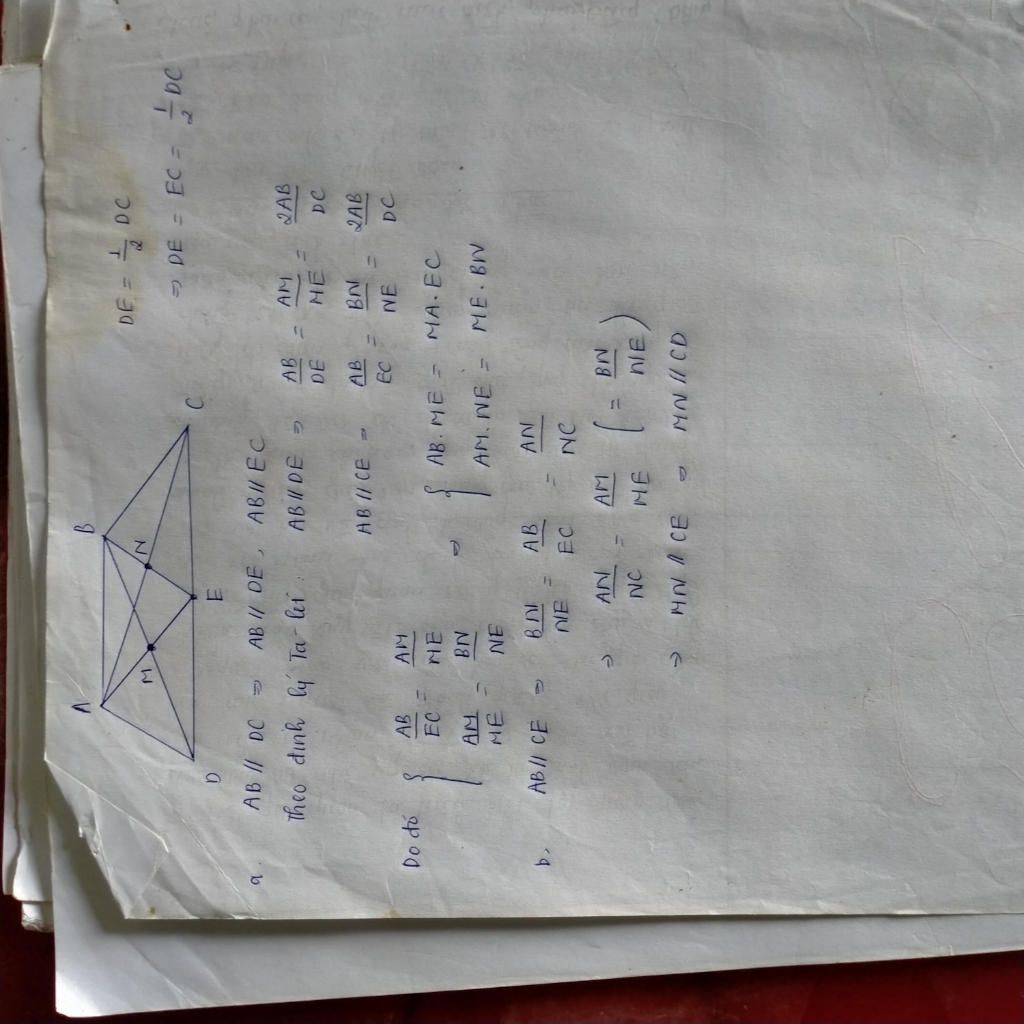 A B
M N
D E C
DE = 1/2 DC
⇒ DE = EC = 1/2 DC
a. AB // DC ⇒ AB // DE, AB // EC
theo định lý Ta-lét. AB // DE ⇒ AB/DE = AM/ME = 2AB/DC
AB // CE ⇒ AB/EC = BN/NE = 2AB/DC
Do đó { AB/EC = AM/ME ⇒ { AB.ME = MA.EC
AM/ME = BN/NE AM.NE = ME.BN
b, AB // CE ⇒ BN/NE = AB/EC = AN/NC
⇒ AN/NC = AM/ME (= BN/NE)
⇒ MN // CE ⇒ MN // CD